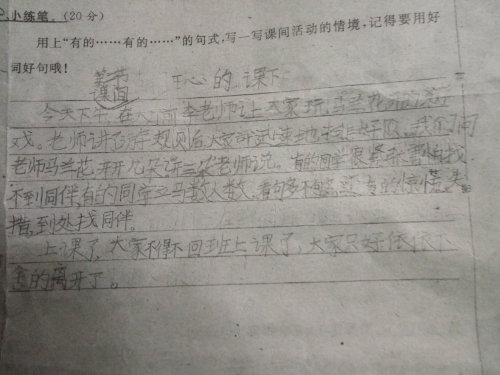 小练笔。(20分)
用上“有的……有的……”的句式,写一写课间活动的情境,记得要用好
词好句哦!
开心的课下
课间
今天下午,在 前李老师让大家玩马兰花 游
戏。老师讲 游字规则后大家 试 地 好队,我们问
老师马兰花开几朵 三朵老师说。有的同学很紧张,害怕找
不到同伴,有的同学立马数人数,看 够不够 ,有的惊慌失
措,到处找同伴。
上课了,大家不得不回班上课了,大家只好依依不
舍的离开了。